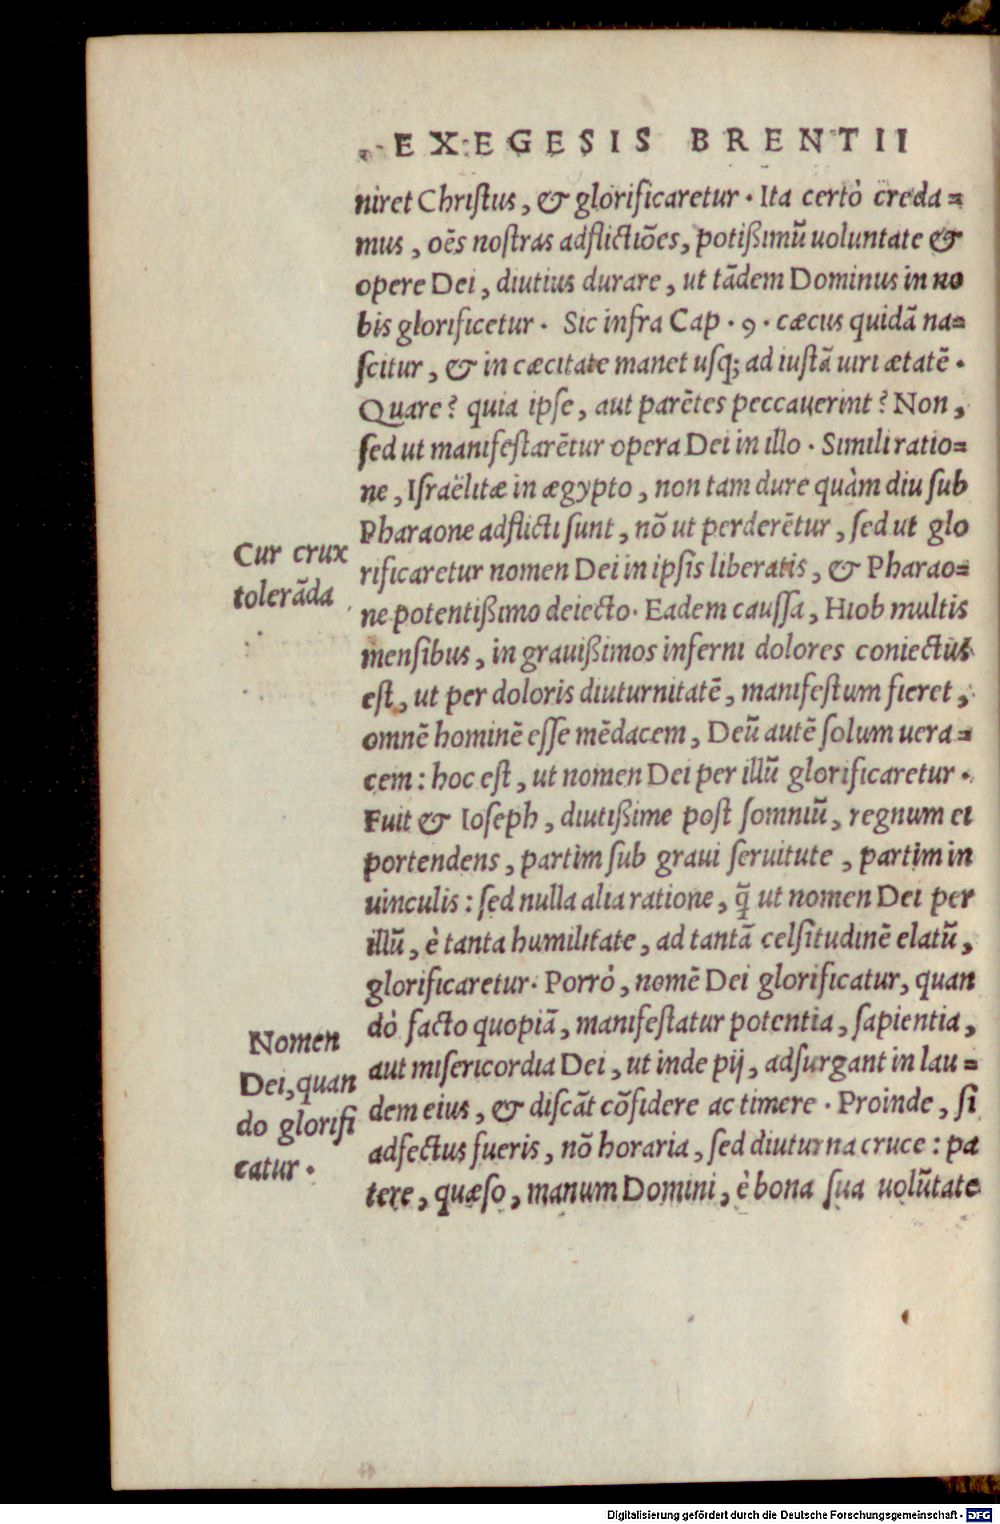 EXEGESIS BRENTII
niret Christus, & glorificaretur. Ita certò creda=
mus, oēs nostras adflictiōes, potißimũ uoluntate &
opere Dei, diutius durare, ut tādem Dominus in no
bis glorificetur. Sic infra Cap. 9. cæcus quidā na=
scitur, & in cæcitate manet usq; ad iustā uiri ætatē.
Quare? quia ipse, aut parētes peccauerint? Non,
sed ut manifestarētur opera Dei in illo. Simili ratio=
ne, Israëlitæ in ægypto, non tam dure quàm diu sub
Pharaone adflicti sunt, nō ut perderētur, sed ut glo
rificaretur nomen Dei in ipsis liberatis, & Pharao=
ne potentißimo deiecto. Eadem caussa, Hiob multis
mensibus, in grauißimos inferni dolores coniectus
est, ut per doloris diuturnitatē, manifestum fieret,
omnē hominē esse mēdacem, Deũ autē solum uera=
cem: hoc est, ut nomen Dei per illũ glorificaretur.
Fuit & Ioseph, diutißime post somniũ, regnum ei
portendens, partim sub graui seruitute, partim in
uinculis: sed nulla alia ratione, q̃ ut nomen Dei per
illũ, è tanta humilitate, ad tantā celsitudinē elatũ,
glorificaretur. Porrò, nomē Dei glorificatur, quan
dò facto quopiā, manifestatur potentia, sapientia,
aut misericordia Dei, ut inde pij, adsurgant in lau=
dem eius, & discāt cōfidere ac timere. Proinde, si
adfectus fueris, nō horaria, sed diuturna cruce: pa
tere, quæso, manum Domini, è bona sua uolũtate
Cur crux
tolerāda
Nomen
Dei, quan
do glorifi
catur.
Digitalisierung gefördert durch die Deutsche Forschungsgemeinschaft - DFG